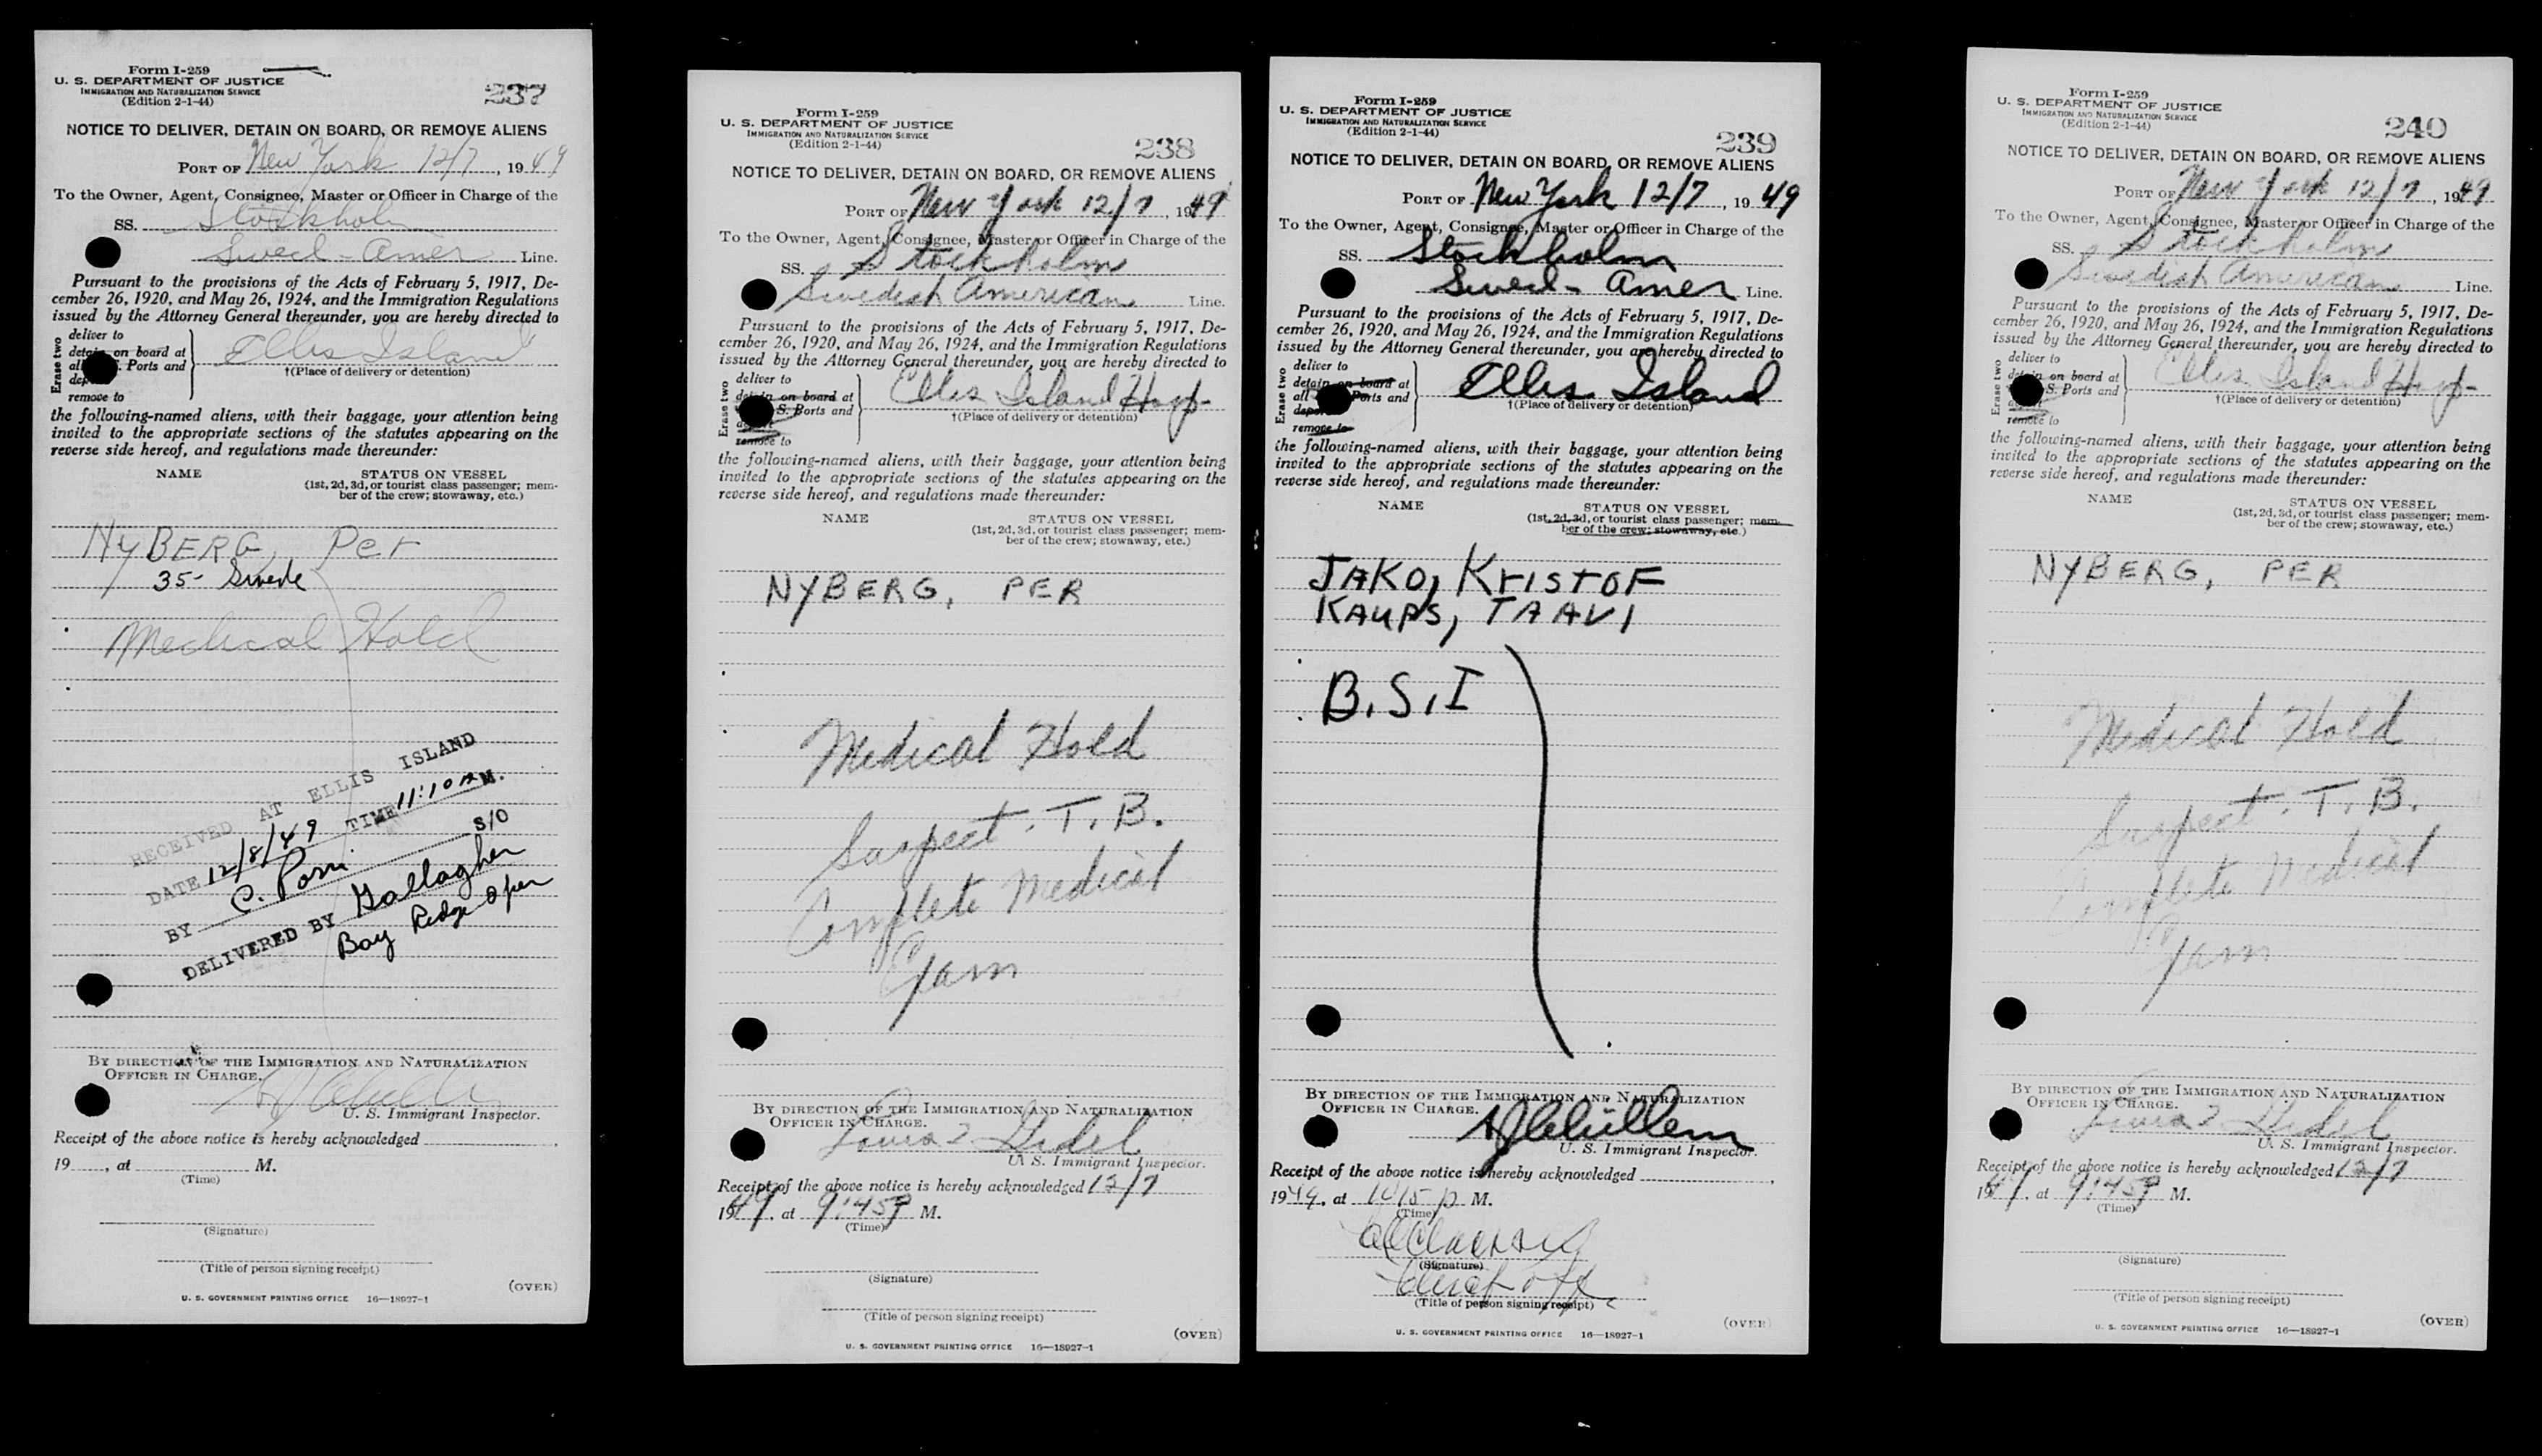 Form I-259
U. S. DEPARTMENT OF JUSTICE
IMMIGRATION AND NATURALIZATION SERVICE
(Edition 2-1-44)
237
NOTICE TO DELIVER, DETAIN ON BOARD, OR REMOVE ALIENS
PORT OF New York 12/7, 1949
To the Owner, Agent, Consignee, Master or Officer in Charge of the
SS. Stockholm
Swed-Amer Line.
Pursuant to the provisions of the Acts of February 5, 1917, De-
cember 26, 1920, and May 26, 1924, and the Immigration Regulations
issued by the Attorney General thereunder, you are hereby directed to
Erase two
deliver to
detain on board at
all Ports and
remove to
Ellis Island
†(Place of delivery or detention)
the following-named aliens, with their baggage, your attention being
invited to the appropriate sections of the statutes appearing on the
reverse side hereof, and regulations made thereunder:
NAME STATUS ON VESSEL
(1st, 2d, 3d, or tourist class passenger; mem-
ber of the crew; stowaway, etc.)
NYBERG, Per
35- Swede
Medical Hold
RECEIVED AT ELLIS ISLAND
DATE 12/8/49 TIME 11:10 AM.
BY C. Porri S/O
DELIVERED BY Gallagher
Bay Ridge Oper
BY DIRECTION OF THE IMMIGRATION AND NATURALIZATION
OFFICER IN CHARGE.
U. S. Immigrant Inspector.
Receipt of the above notice is hereby acknowledged
19, at M.
(Time)
(Signature)
(Title of person signing receipt)
(OVER)
U. S. GOVERNMENT PRINTING OFFICE 16—18927-1
Form I-259
U. S. DEPARTMENT OF JUSTICE
IMMIGRATION AND NATURALIZATION SERVICE
(Edition 2-1-44)
238
NOTICE TO DELIVER, DETAIN ON BOARD, OR REMOVE ALIENS
PORT OF New York 12/7, 1949
To the Owner, Agent, Consignee, Master or Officer in Charge of the
SS. Stockholm
Swedish American Line.
Pursuant to the provisions of the Acts of February 5, 1917, De-
cember 26, 1920, and May 26, 1924, and the Immigration Regulations
issued by the Attorney General thereunder, you are hereby directed to
Erase two
deliver to
detain on board at
S. Ports and
remove to
Ellis Island Hosp-
†(Place of delivery or detention)
the following-named aliens, with their baggage, your attention being
invited to the appropriate sections of the statutes appearing on the
reverse side hereof, and regulations made thereunder:
NAME STATUS ON VESSEL
(1st, 2d, 3d, or tourist class passenger; mem-
ber of the crew; stowaway, etc.)
NYBERG, PER
Medical Hold
Suspect. T. B.
Complete Medical
Exam
BY DIRECTION OF THE IMMIGRATION AND NATURALIZATION
OFFICER IN CHARGE.
U. S. Immigrant Inspector.
Receipt of the above notice is hereby acknowledged 12/7
1949, at 9:45P M.
(Time)
(Signature)
(Title of person signing receipt)
(OVER)
U. S. GOVERNMENT PRINTING OFFICE 16—18927-1
Form I-259
U. S. DEPARTMENT OF JUSTICE
IMMIGRATION AND NATURALIZATION SERVICE
(Edition 2-1-44)
239
NOTICE TO DELIVER, DETAIN ON BOARD, OR REMOVE ALIENS
PORT OF New York 12/7, 1949
To the Owner, Agent, Consignee, Master or Officer in Charge of the
SS. Stockholm
Swed- Amer Line.
Pursuant to the provisions of the Acts of February 5, 1917, De-
cember 26, 1920, and May 26, 1924, and the Immigration Regulations
issued by the Attorney General thereunder, you are hereby directed to
Erase two
deliver to
detain on board at
all Ports and
remove to
Ellis Island
†(Place of delivery or detention)
the following-named aliens, with their baggage, your attention being
invited to the appropriate sections of the statutes appearing on the
reverse side hereof, and regulations made thereunder:
NAME STATUS ON VESSEL
(1st, 2d, 3d, or tourist class passenger; mem-
ber of the crew; stowaway, etc.)
JAKO, KRISTOF
KAUPS, TAAVI
B.S.I
BY DIRECTION OF THE IMMIGRATION AND NATURALIZATION
OFFICER IN CHARGE.
U. S. Immigrant Inspector.
Receipt of the above notice is hereby acknowledged
1949, at 1015 p M.
(Time)
(Signature)
(Title of person signing receipt)
(OVER)
U. S. GOVERNMENT PRINTING OFFICE 16—18927-1
Form I-259
U. S. DEPARTMENT OF JUSTICE
IMMIGRATION AND NATURALIZATION SERVICE
(Edition 2-1-44)
240
NOTICE TO DELIVER, DETAIN ON BOARD, OR REMOVE ALIENS
PORT OF New York 12/7, 1949
To the Owner, Agent, Consignee, Master or Officer in Charge of the
SS. Stockholm
Swedish American Line.
Pursuant to the provisions of the Acts of February 5, 1917, De-
cember 26, 1920, and May 26, 1924, and the Immigration Regulations
issued by the Attorney General thereunder, you are hereby directed to
Erase two
deliver to
detain on board at
S. Ports and
remove to
Ellis Island Hosp-
†(Place of delivery or detention)
the following-named aliens, with their baggage, your attention being
invited to the appropriate sections of the statutes appearing on the
reverse side hereof, and regulations made thereunder:
NAME STATUS ON VESSEL
(1st, 2d, 3d, or tourist class passenger; mem-
ber of the crew; stowaway, etc.)
NYBERG, PER
Medical Hold
Suspect. T. B.
Complete Medical
Exam
BY DIRECTION OF THE IMMIGRATION AND NATURALIZATION
OFFICER IN CHARGE.
U. S. Immigrant Inspector.
Receipt of the above notice is hereby acknowledged 12/7
1949, at 9:45P M.
(Time)
(Signature)
(Title of person signing receipt)
(OVER)
U. S. GOVERNMENT PRINTING OFFICE 16—18927-1